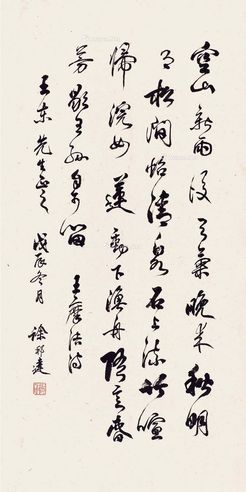 空山新雨後天氣晚來秋明
月松間照清泉石上流竹喧
歸浣女蓮動下漁舟隨意春
芳歇王孫自可留 王摩诘诗
王东先生正之 戊辰冬月 徐邦達